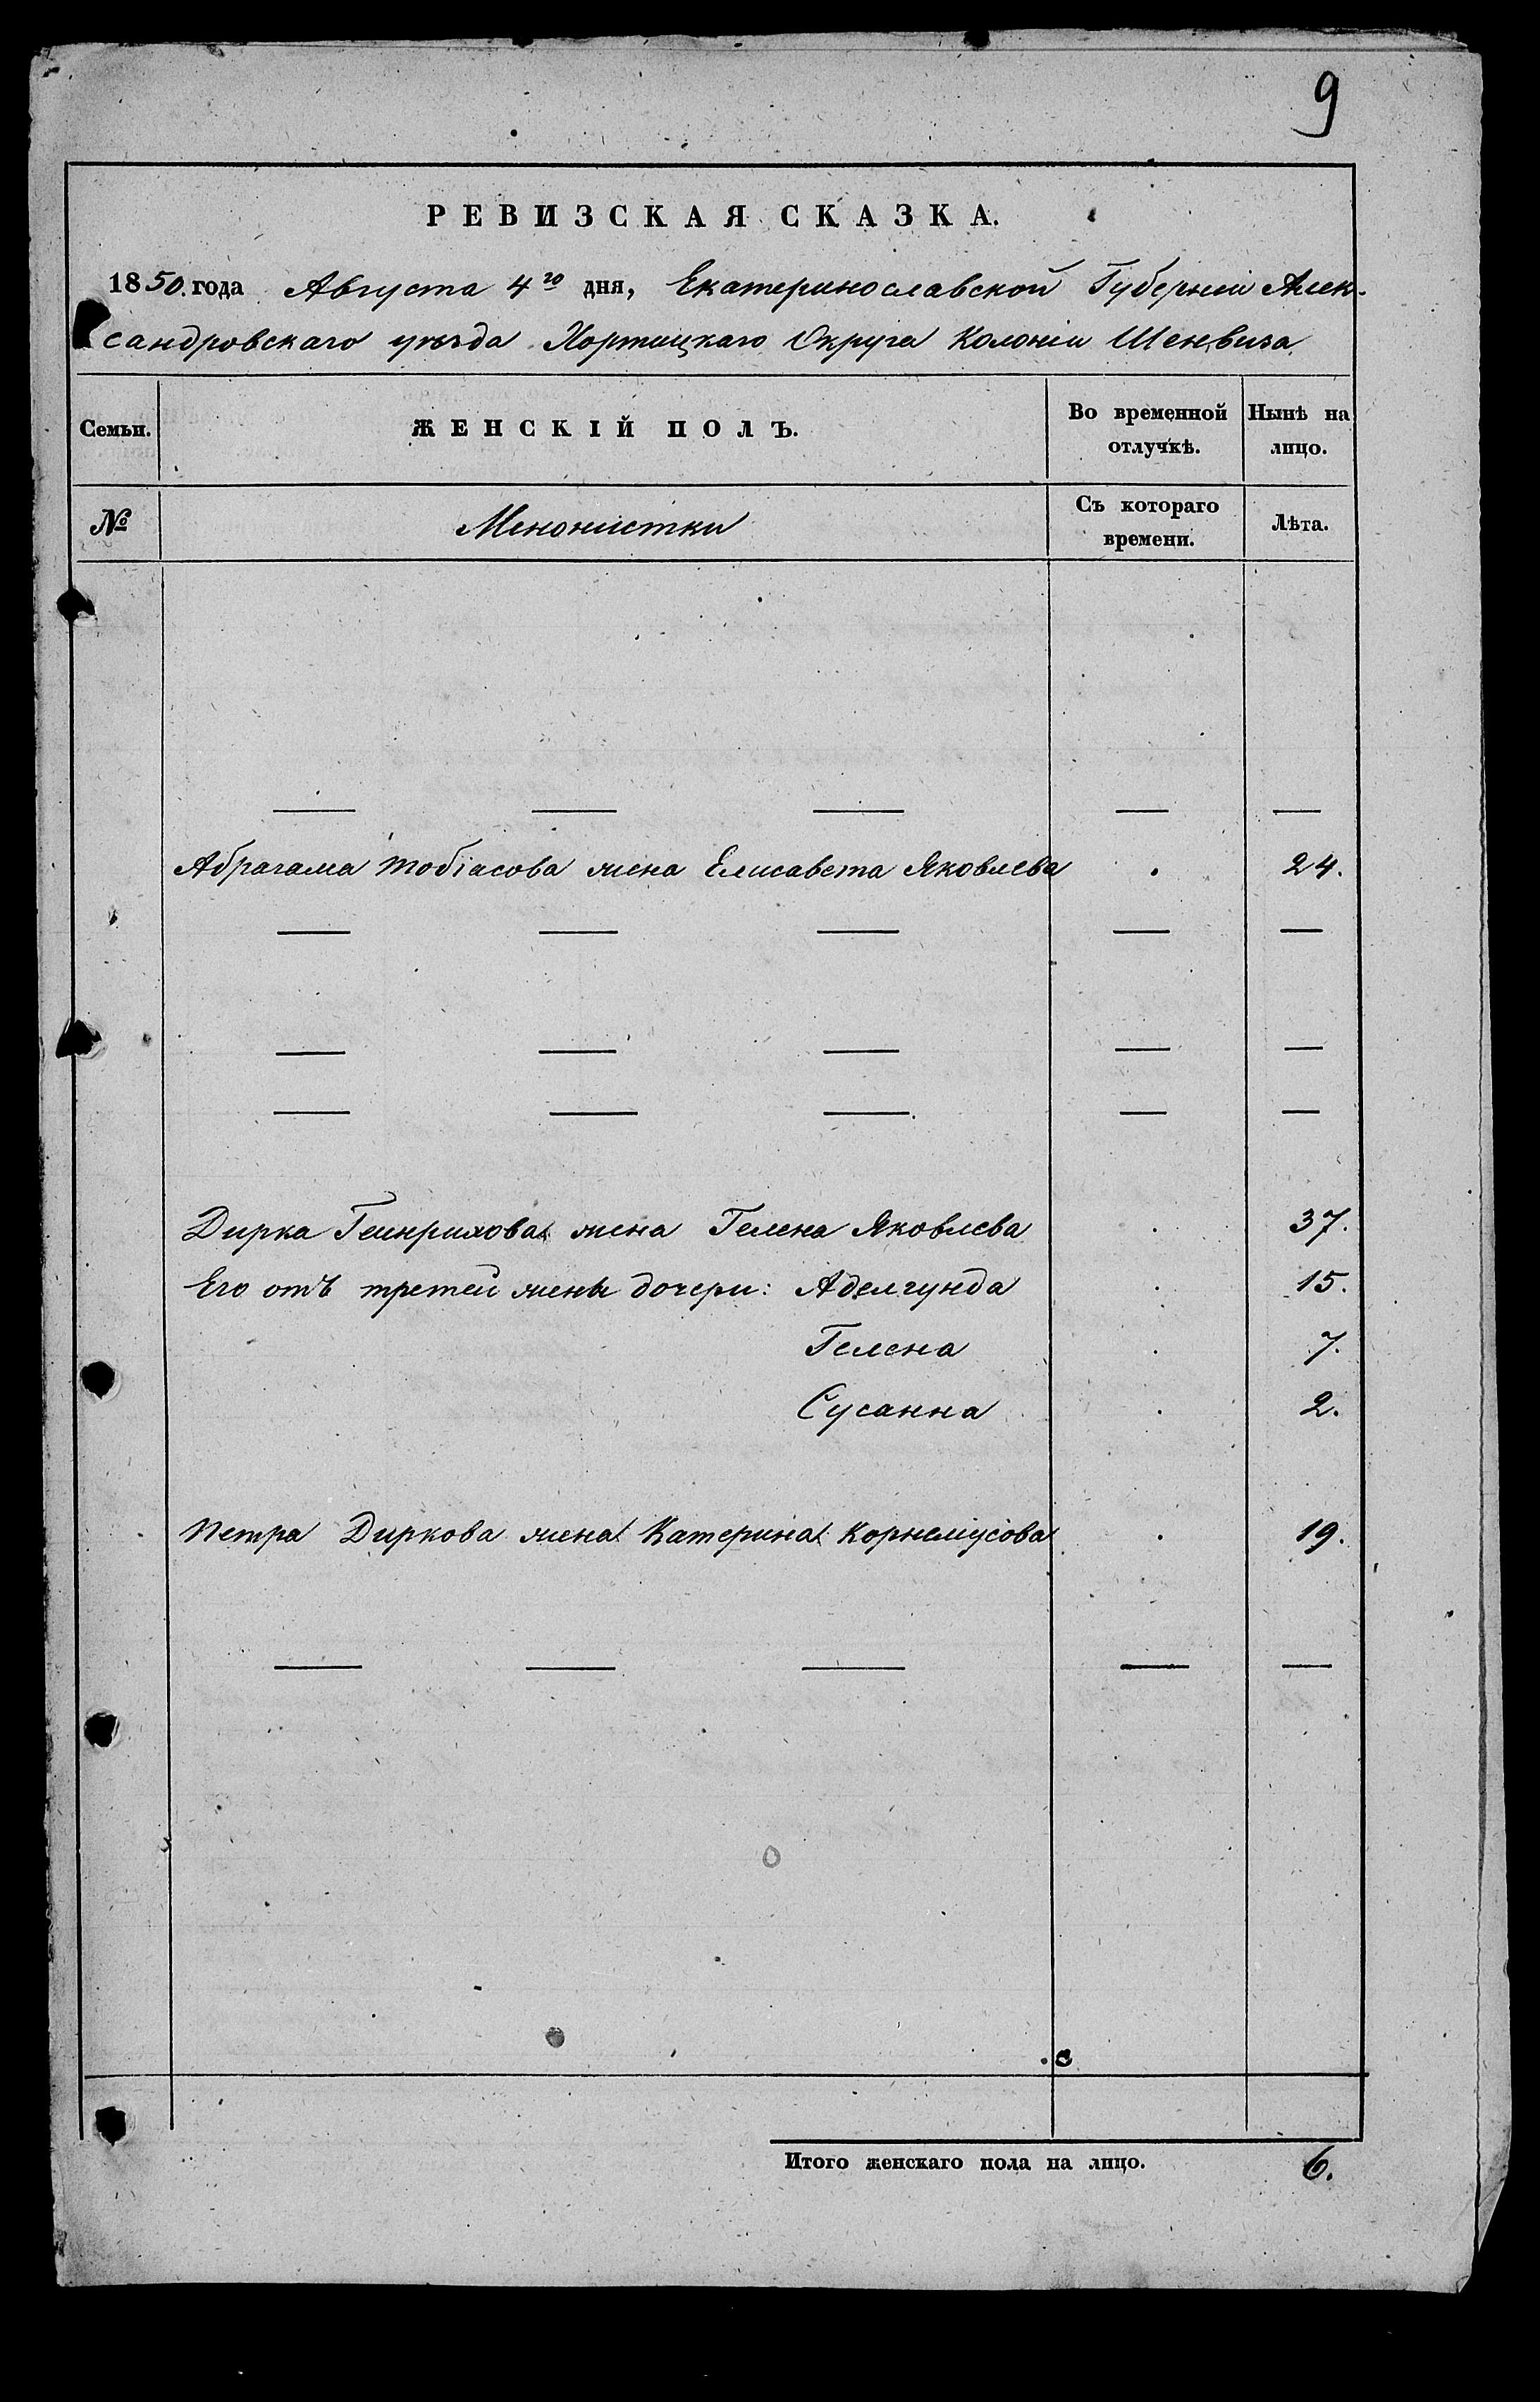 9
РЕВИЗСКАЯ СКАЗКА.
1850. года Августа 4го дня, Екатеринославской Губерніи Алек-
сандровскаго уѣзда Хортицкаго Округа Колоніи Шенвиза.
Семьи. ЖЕНСКІЙ ПОЛЪ. Во временной отлучкѣ. Нынѣ на лицо.
№ Менонистки Съ котораго времени. Лѣта.
— — — — —
Абрагама Тобіасова жена Елисавета Яковлева . 24.
— — — — —
— — — — —
— — — — —
Дирка Генрихова жена Гелена Яковлева . 37.
Его отъ третей жены дочери: Аделгунда . 15.
Гелена . 7.
Сусанна . 2.
Петра Диркова жена Катерина Корнеліусова . 19.
— — — — —
Итого женскаго пола на лицо. 6.